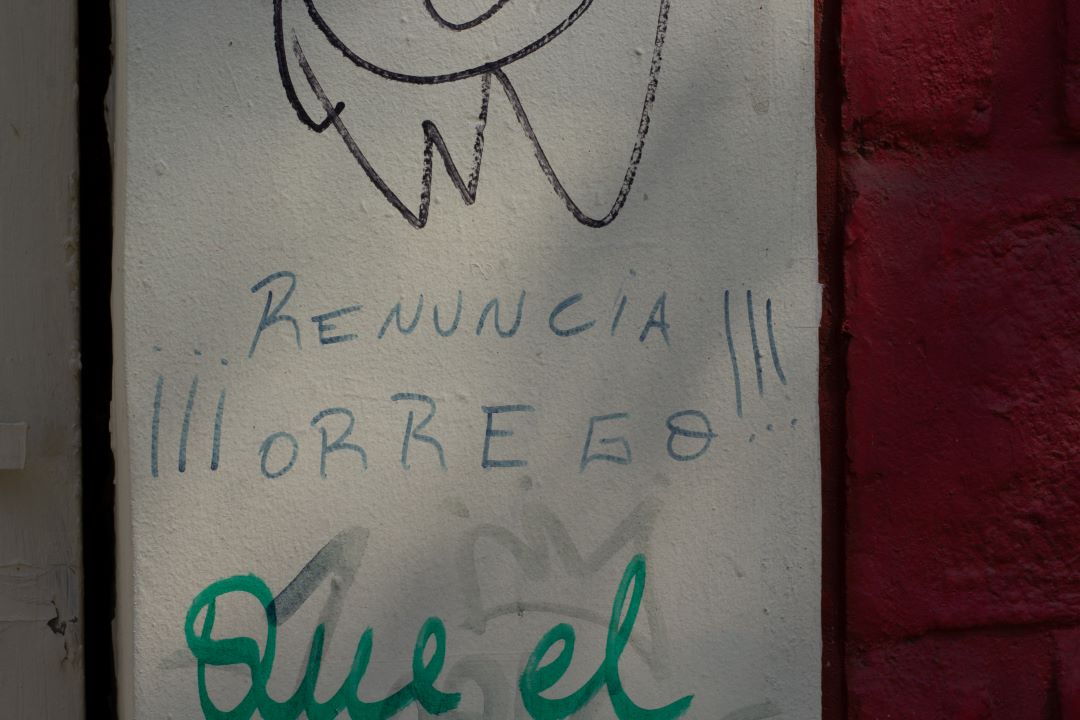 ¡¡¡RENUNCIA
ORREGO!!!
Que el